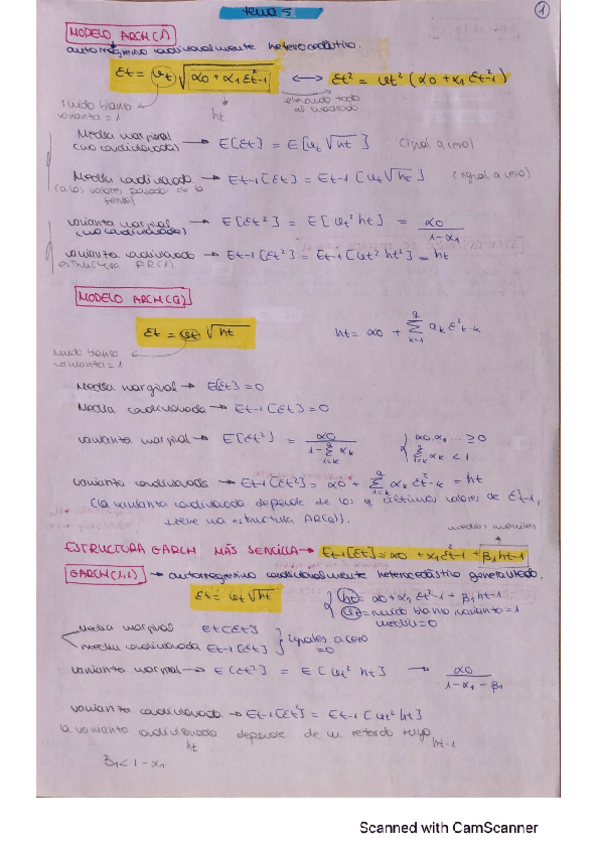 tema 5
1
MODELO ARCH(1)
autorregresivo condicionalmente heterocedástico.
εt = υt √(α0 + α1 ε²t-1) ⟷ εt² = υt² (α0 + α1 ε²t-1)
ruido blanco
varianza = 1
ht
elevando todo
al cuadrado
Media marginal
(no condicionada) → E[εt] = E[υt √ht] (igual a cero)
Media condicionada → Et-1[εt] = Et-1[υt √ht] (igual a cero)
(a los valores pasados de la
varianza marginal
(no condicionada) → E[εt²] = E[υt² ht] = α0 / 1-α1
varianza condicionada → Et-1[εt²] = Et-1[υt² ht²] = ht
estructura AR(1)
MODELO ARCH(q)
εt = υt √ht
ht = α0 + Σ(k=1, q) αk ε²t-k
ruido blanco
varianza = 1
Media marginal → E[εt] = 0
Media condicionada → Et-1[εt] = 0
varianza marginal → E[εt²] = α0 / 1-Σ αk { α0, α1 ... ≥ 0
Σ αk < 1
varianza condicionada → Et-1[εt²] = α0 + Σ αk ε²t-k = ht
(la varianza condicionada depende de los q últimos valores de ε²t-1,
tiene una estructura AR(q)).
medias móviles
ESTRUCTURA GARCH MÁS SENCILLA → Et-1[εt] = α0 + α1 ε²t-1 + β1 ht-1
GARCH(1,1) → autorregresivo condicionalmente heterocedástico generalizado.
εt = υt √ht
{ ht = α0 + α1 εt²-1 + β1 ht-1
υt = ruido blanco varianza = 1
media = 0
media marginal Et[εt]
media condicionada Et-1[εt] } iguales a cero
= 0
varianza marginal → E[εt²] = E[υt² ht] → α0 / 1-α1-β1
varianza condicionada → Et-1[εt²] = Et-1[υt² ht]
la varianza condicionada depende de un retardo suyo
ht
ht-1
β1 < 1 - α1
Scanned with CamScanner